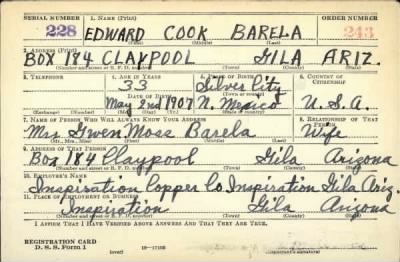 SERIAL NUMBER 1. NAME (Print) ORDER NUMBER
228 EDWARD COOK BARELA 243
(First) (Middle) (Last)
2. ADDRESS (Print)
BOX 184 CLAYPOOL GILA ARIZ.
(Number and street or R. F. D. number) (Town) (County) (State)
3. TELEPHONE 4. AGE IN YEARS 5. PLACE OF BIRTH 6. COUNTRY OF CITIZENSHIP
33 Silver City
DATE OF BIRTH (Town or county)
May 2nd 1907 N. Mexico U.S.A.
(Exchange) (Number) (Mo.) (Day) (Yr.) (State or country)
7. NAME OF PERSON WHO WILL ALWAYS KNOW YOUR ADDRESS 8. RELATIONSHIP OF THAT PERSON
Mrs Gwen Moss Barela Wife
(Mr., Mrs., Miss) (First) (Middle) (Last)
9. ADDRESS OF THAT PERSON
Box 184 Claypool Gila Arizona
(Number and street or R. F. D. number) (Town) (County) (State)
10. EMPLOYER'S NAME
Inspiration Copper Co Inspiration Gila Ariz.
11. PLACE OF EMPLOYMENT OR BUSINESS
Inspiration Gila Arizona
(Number and street or R. F. D. number) (Town) (County) (State)
I AFFIRM THAT I HAVE VERIFIED ABOVE ANSWERS AND THAT THEY ARE TRUE.
REGISTRATION CARD
D. S. S. Form 1 (over) 16—17105